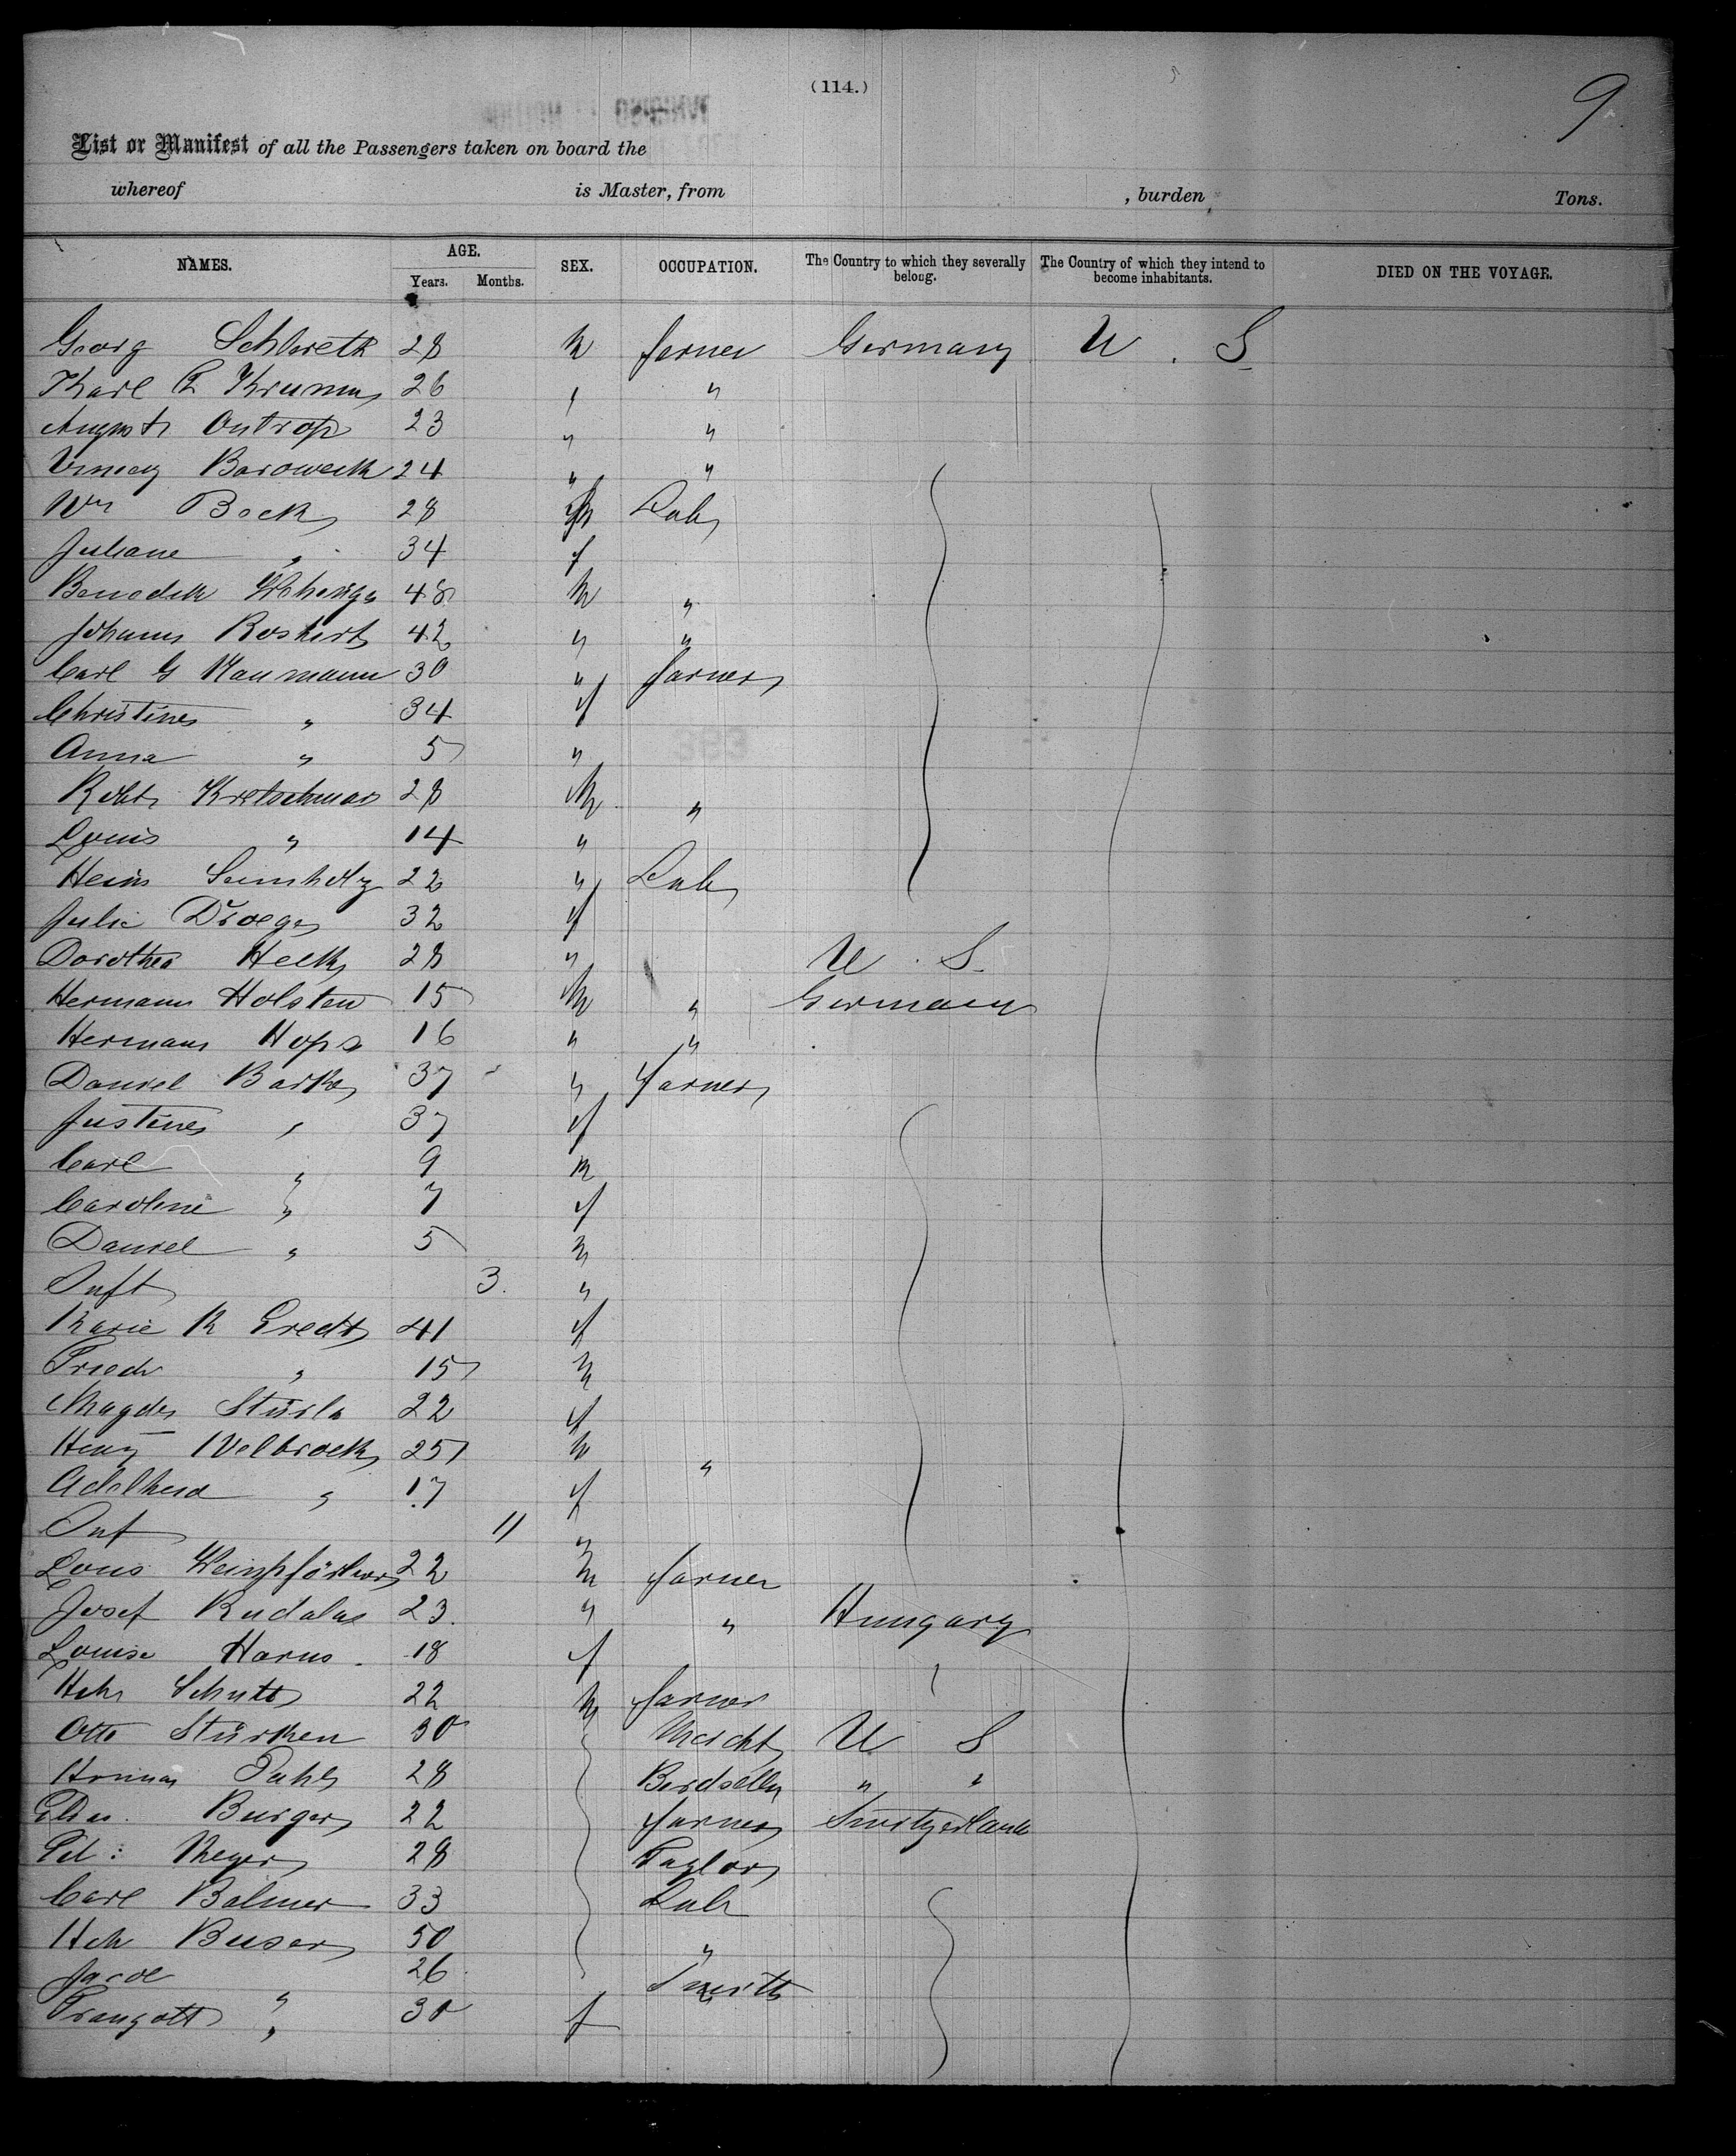 (114.)
9
List or Manifest of all the Passengers taken on board the
whereof is Master, from , burden Tons.
NAMES. AGE. Years. Months. SEX. OCCUPATION. The Country to which they severally belong. The Country of which they intend to become inhabitants. DIED ON THE VOYAGE.
Georg 28 m farmer Germany U. S.
Karl 26 " "
August Ontrop 23 " "
24 " "
Wm Bock 28 m Lab
Juliane " 34 f
Benedikt 48 m "
Johann 42 " "
Carl G Naumann 30 " farmer
Christine " 34 f
Anna " 5 "
Robt Kretschmar 28 m "
Louis " 14 "
Heinr 22 " Lab
Julie Droege 32 f
Dorothea Heck 28 " U. S.
Hermann Holsten 15 m " Germany
Hermann Hops 16 " "
Daniel Barke 37 " farmer
Justine " 37 f
Carl " 9 m
Caroline " 7 f
Daniel " 5 m
Inft 3. "
Marie M 41 f
Friedr " 15 m
Magda 22 f
Heinr Welbrock 25 m "
Adelheid " 17 f
Inf 11 "
Louis 22 m farmer
Josef Rudalas 23 " " Hungary
Louise Harms 18 f
Hch Schutt 22 m farmer
Otto Stürken 30 Mercht U S
28 " "
Burger 22 farmer Switzerland
Ed: Meyer 28 Taylor
Carl Balmer 33 Lab
Hch Buser 50 "
Jacob " 26 Smith
Traugott " 30 f